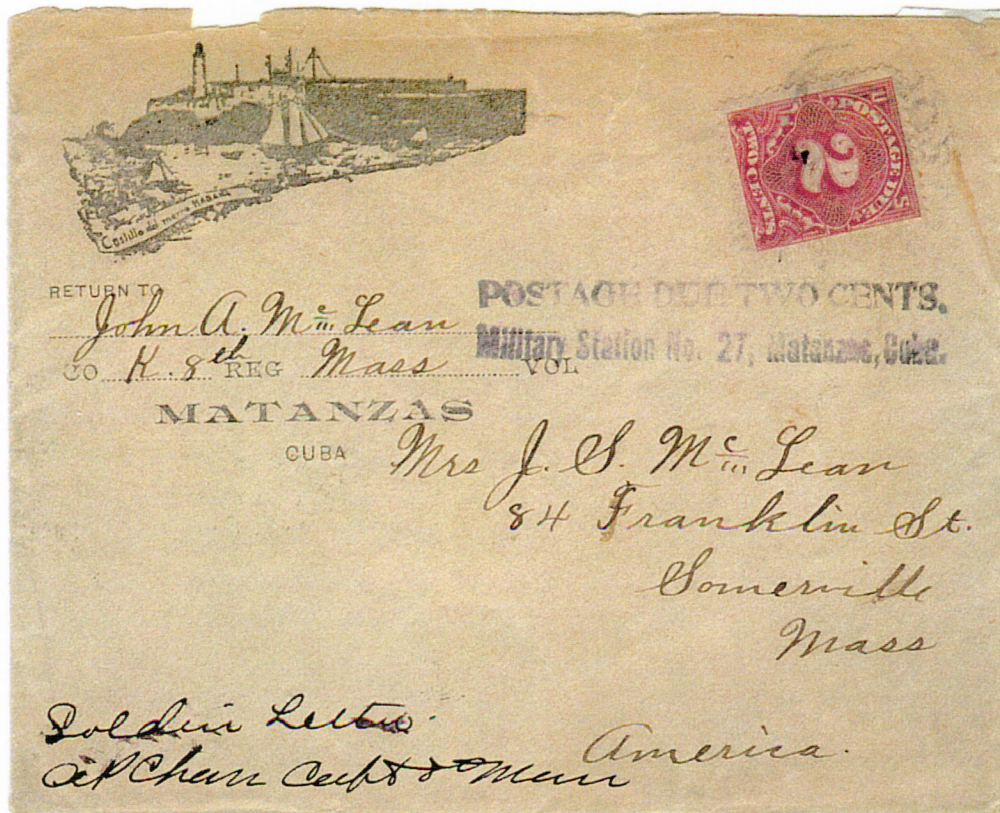 Castillo del morro Habana
POSTAGE DUE
2
TWO CENTS
RETURN TO
John A. Mc Lean
CO K. 8th REG Mass VOL
MATANZAS
CUBA
POSTAGE DUE TWO CENTS.
Military Station No. 27, Matanzas, Cuba.
Mrs J. S. Mc Lean
84 Franklin St.
Somerville
Mass
America.
Soldier Letter.
Capt